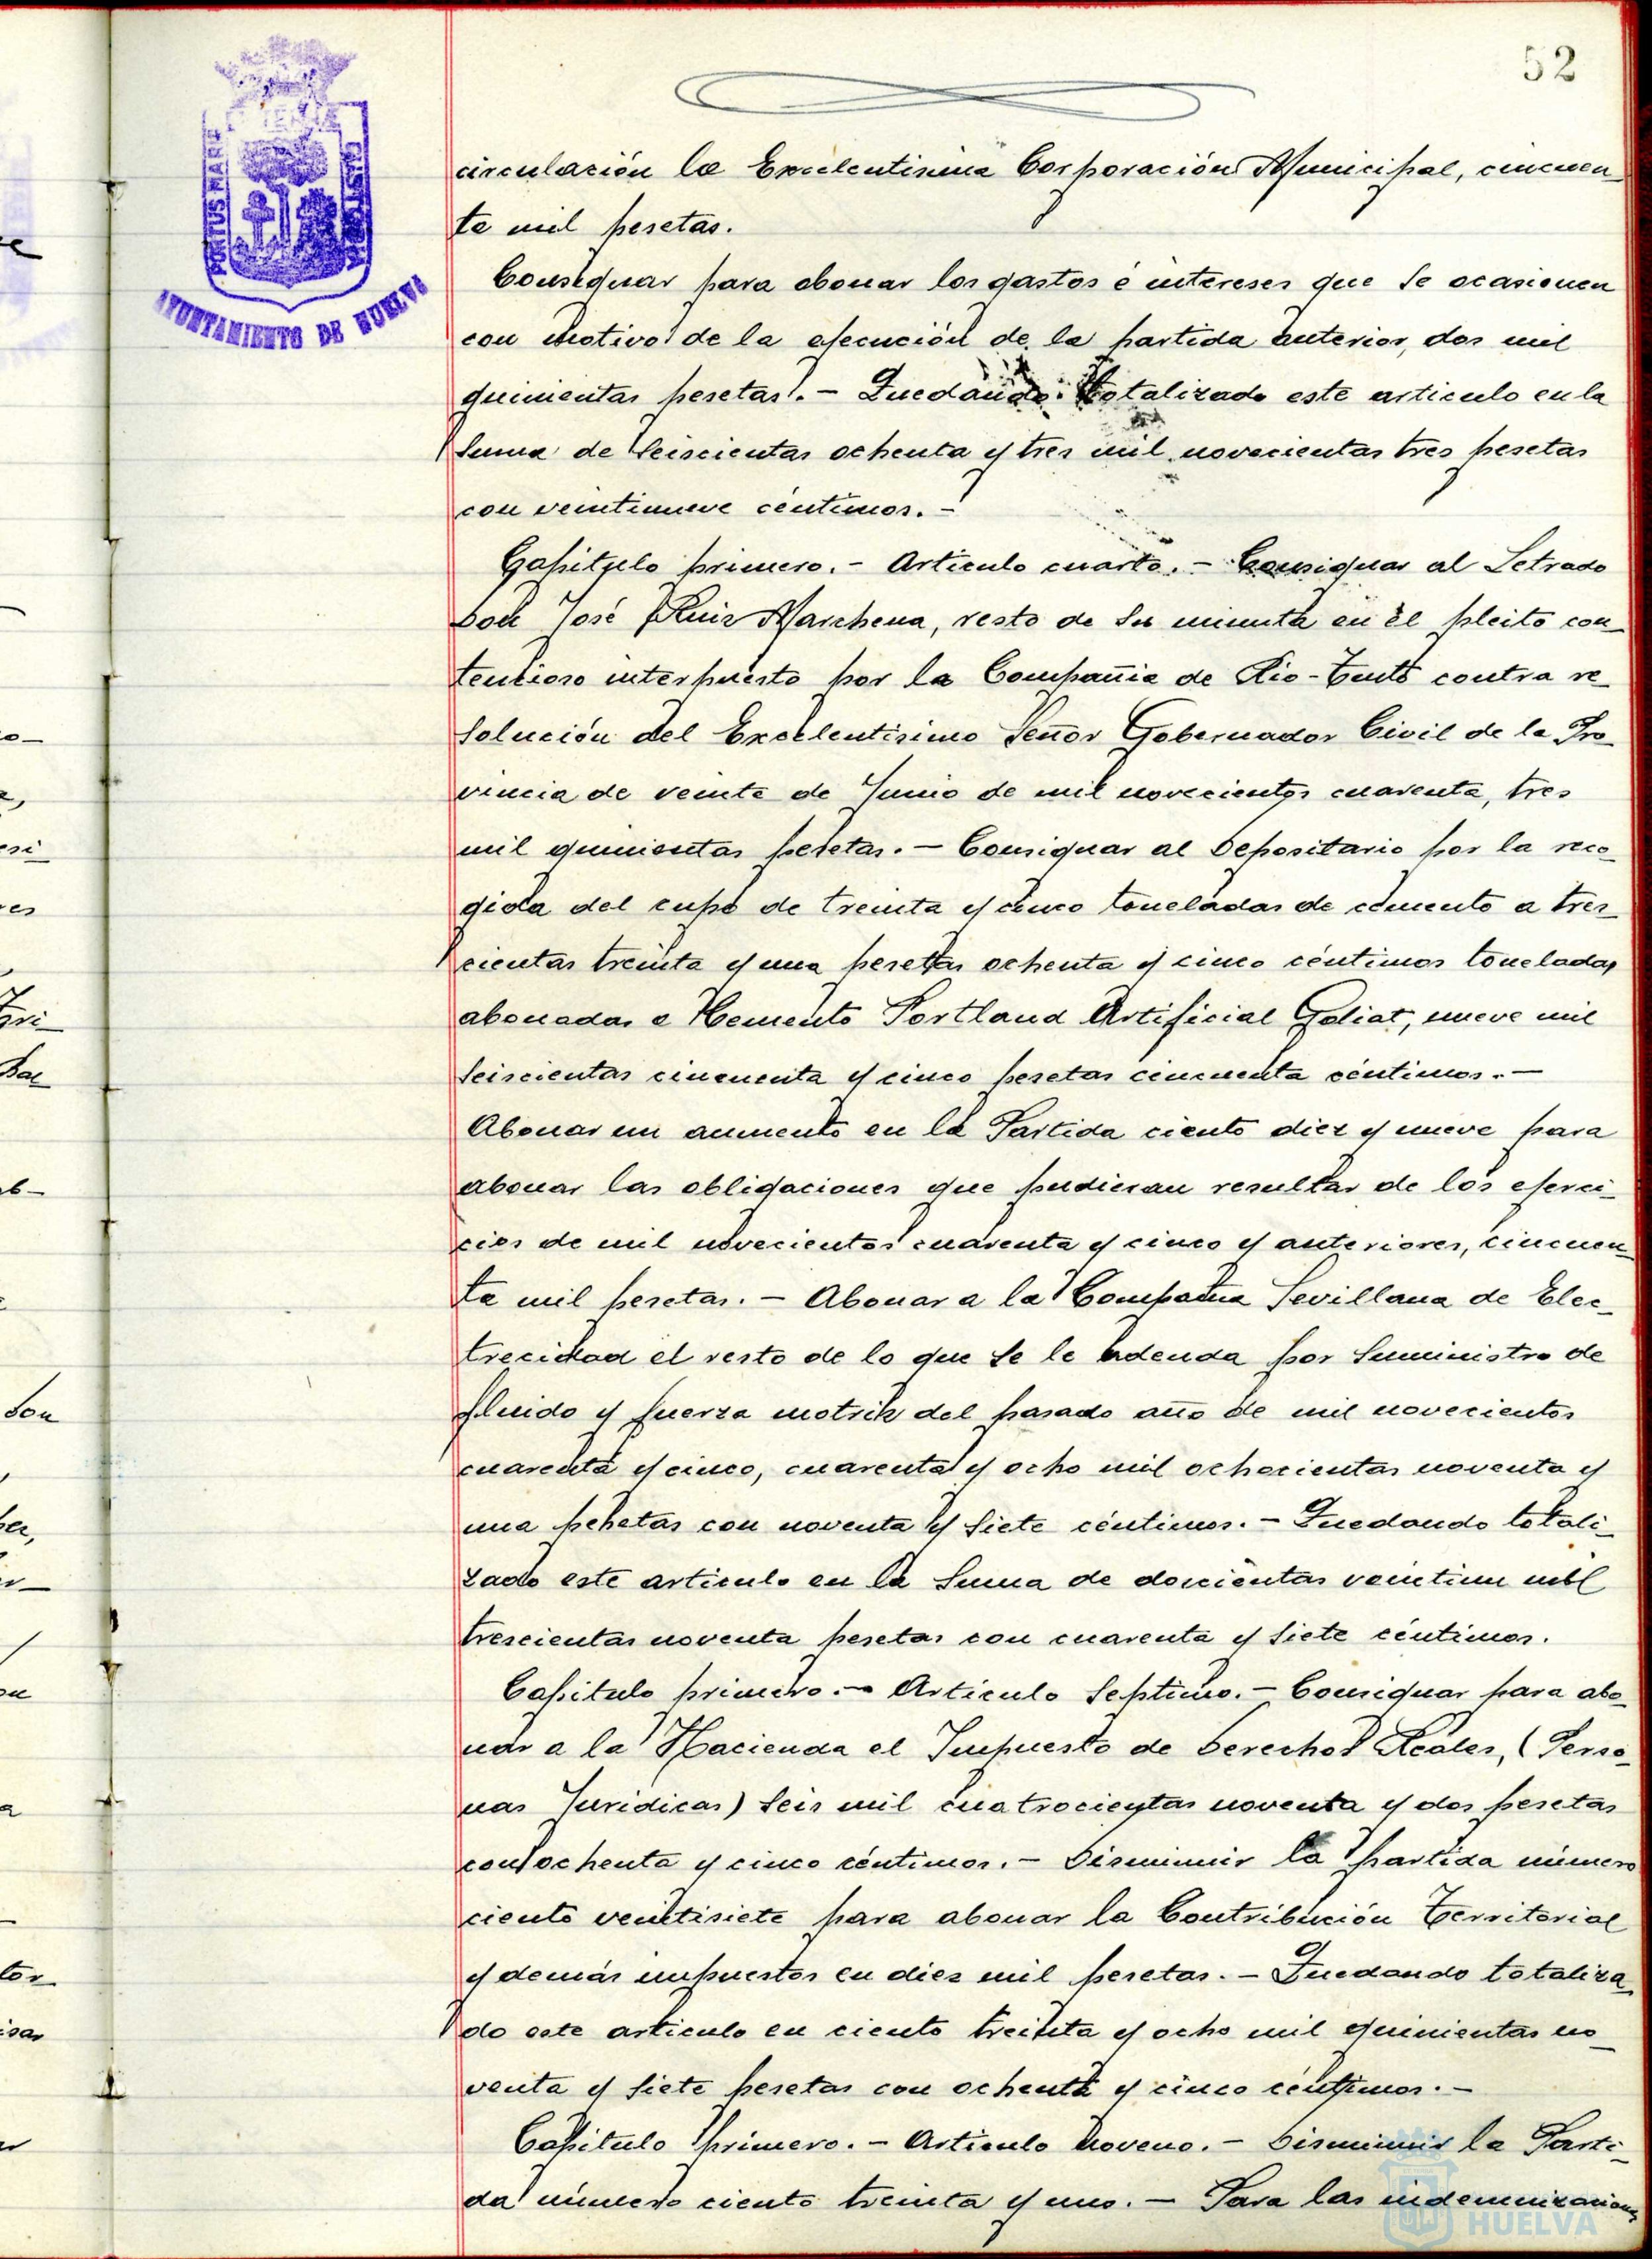 52
PORTUS MARIS
ET TERRÆ
CUSTODIA
AYUNTAMIENTO DE HUELVA
circulación la Excelentisima Corporación Municipal, cincuen_
ta mil pesetas.
Consignar para abonar los gastos é intereses que se ocasionen
con motivo de la ejecución de la partida anterior, dos mil
quinientas pesetas. - Quedando totalizado este articulo en la
suma de seiscientas ochenta y tres mil novecientas tres pesetas
con veintinueve céntimos. -
Capitulo primero. - Articulo cuarto. - Consignar al Letrado
Don José Ruiz Marchena, resto de su minuta en el pleito con_
tencioso interpuesto por la Compañia de Rio-Tinto contra re_
solución del Excelentisimo Señor Gobernador Civil de la Pro_
vincia de veinte de Junio de mil novecientos cuarenta, tres
mil quinientas pesetas. - Consignar al Depositario por la reco_
gida del cupo de treinta y cinco toneladas de cemento a tres_
cientas treinta y una pesetas ochenta y cinco céntimos toneladas
abonadas a Cemento Portland Artificial Goliat, nueve mil
seiscientas cincuenta y cinco pesetas cincuenta céntimos. -
Abonar un aumento en la Partida ciento diez y nueve para
abonar las obligaciones que pudieran resultar de los ejerci_
cios de mil novecientos cuarenta y cinco y anteriores, cincuen_
ta mil pesetas. - Abonar a la Compañia Sevillana de Elec_
trecidad el resto de lo que se le adeuda por suministro de
fluido y fuerza motriz del pasado año de mil novecientos
cuarenta y cinco, cuarenta y ocho mil ochocientas noventa y
una pesetas con noventa y siete céntimos. - Quedando totali_
zado este articulo en la suma de doscientas veintiun mil
trescientas noventa pesetas con cuarenta y siete céntimos.
Capitulo primero. - Articulo septimo. - Consignar para abo_
nar a la Hacienda el Impuesto de Derechos Reales, (Perso_
nas Juridicas) seis mil cuatrocientas noventa y dos pesetas
con ochenta y cinco céntimos. - Disminuir la partida número
ciento veintisiete para abonar la Contribución Territorial
y demás impuestos en diez mil pesetas. - Quedando totaliza_
do este articulo en ciento treinta y ocho mil quinientas no_
venta y siete pesetas con ochenta y cinco céntimos. -
Capitulo primero. - Articulo noveno. - Disminuir la Parti_
da número ciento treinta y uno. - Para las indemnizaciones
HUELVA